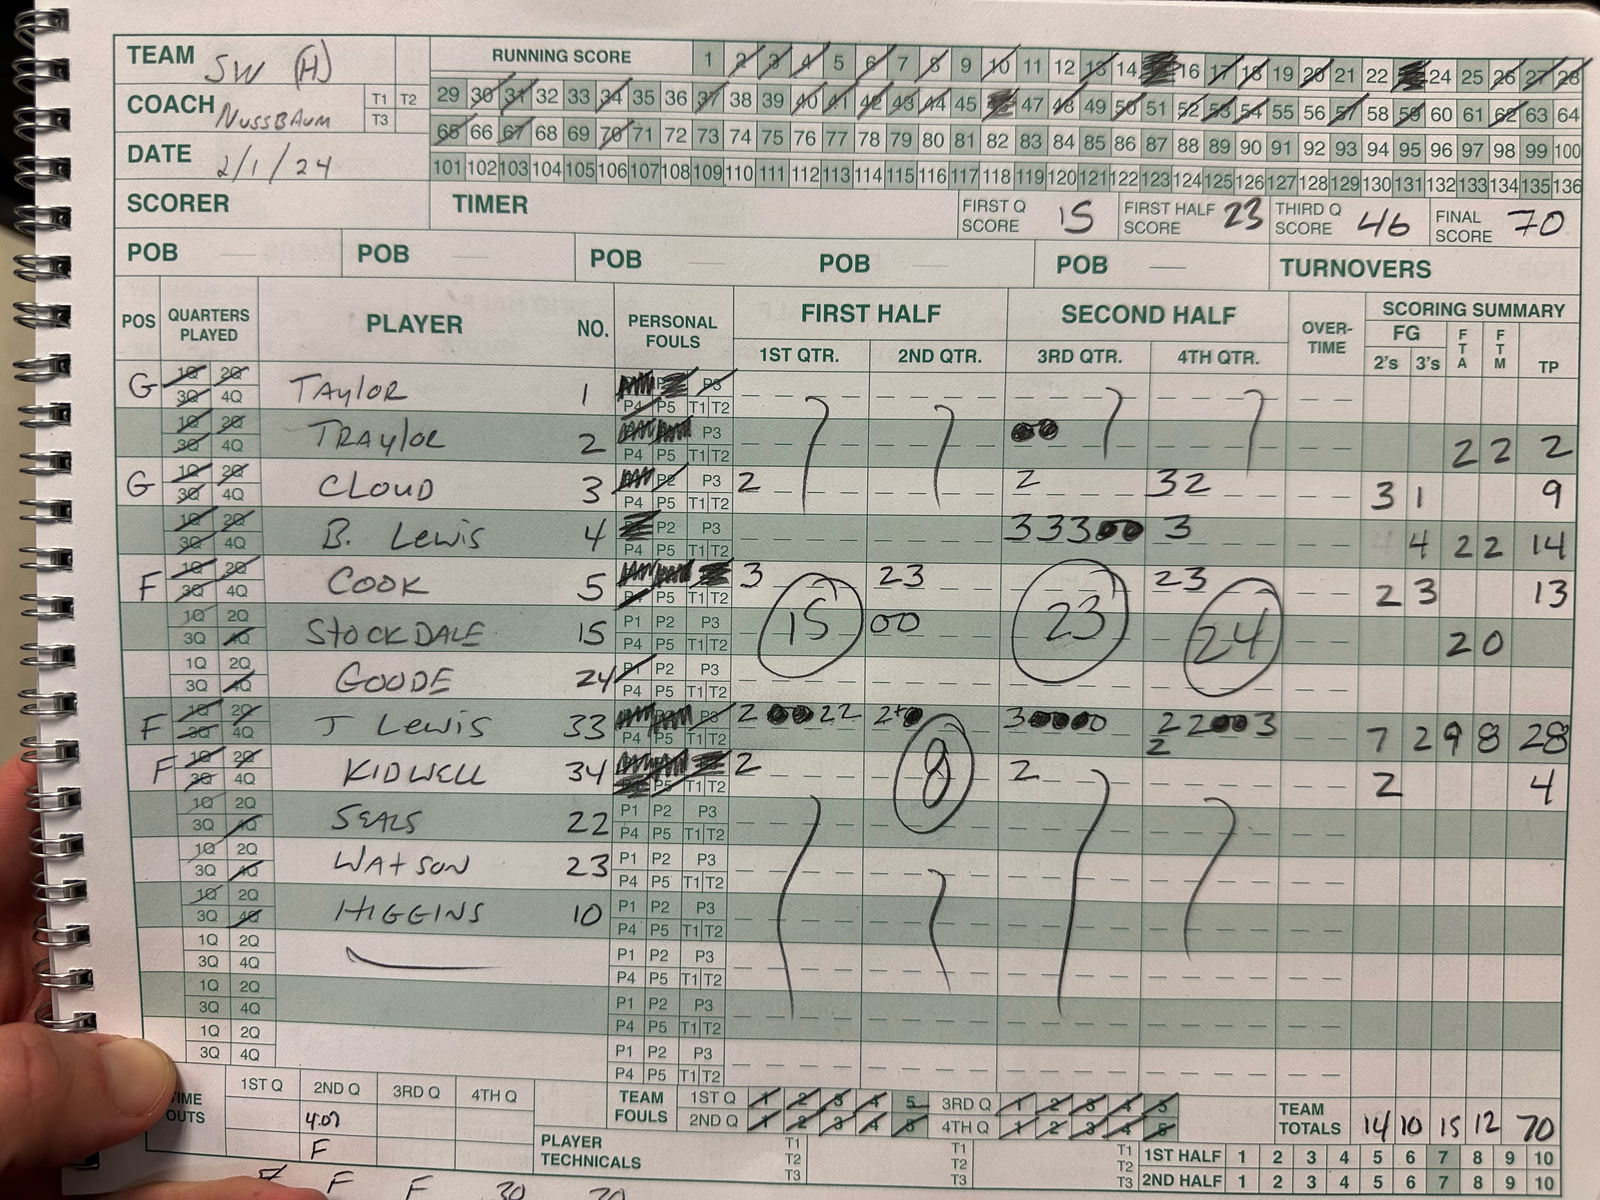 TEAM SW (H) RUNNING SCORE 1 2 3 4 5 6 7 8 9 10 11 12 13 14 16 17 18 19 20 21 22 24 25 26 27 28
COACH NUSSBAUM T1 T2 T3 29 30 31 32 33 34 35 36 37 38 39 40 41 42 43 44 45 47 48 49 50 51 52 53 54 55 56 57 58 59 60 61 62 63 64
65 66 67 68 69 70 71 72 73 74 75 76 77 78 79 80 81 82 83 84 85 86 87 88 89 90 91 92 93 94 95 96 97 98 99 100
DATE 2/1/24 101 102 103 104 105 106 107 108 109 110 111 112 113 114 115 116 117 118 119 120 121 122 123 124 125 126 127 128 129 130 131 132 133 134 135 136
SCORER TIMER FIRST Q SCORE 15 FIRST HALF SCORE 23 THIRD Q SCORE 46 FINAL SCORE 70
POB POB POB POB POB TURNOVERS
POS QUARTERS PLAYED PLAYER NO. PERSONAL FOULS FIRST HALF SECOND HALF OVER-TIME SCORING SUMMARY
1ST QTR. 2ND QTR. 3RD QTR. 4TH QTR. FG 2'S 3'S FTA FTM TP
G 1Q 2Q TAYLOR 1 P3
3Q 4Q P4 P5 T1 T2
1Q 2Q TRAYLOR 2 P3 00 2 2 2
3Q 4Q P4 P5 T1 T2
G 1Q 2Q CLOUD 3 P2 P3 2 2 32 3 1 9
3Q 4Q P4 P5 T1 T2
1Q 2Q B. LEWIS 4 P2 P3 33300 3 4 2 2 14
3Q 4Q P4 P5 T1 T2
F 1Q 2Q COOK 5 3 23 23 2 3 13
3Q 4Q P4 P5 T1 T2
1Q 2Q STOCKDALE 15 P1 P2 P3 15 00 23 24 2 0
3Q 4Q P4 P5 T1 T2
1Q 2Q GOODE 24 P1 P2 P3
3Q 4Q P4 P5 T1 T2
F 1Q 2Q J LEWIS 33 P3 20022 2+0 30000 22003 7 2 9 8 28
3Q 4Q P4 P5 T1 T2 2
F 1Q 2Q KIDWELL 34 2 8 2 2 4
3Q 4Q P5 T1 T2
1Q 2Q SEALS 22 P1 P2 P3
3Q 4Q P4 P5 T1 T2
1Q 2Q WATSON 23 P1 P2 P3
3Q 4Q P4 P5 T1 T2
1Q 2Q HIGGINS 10 P1 P2 P3
3Q 4Q P4 P5 T1 T2
1Q 2Q P1 P2 P3
3Q 4Q P4 P5 T1 T2
1Q 2Q P1 P2 P3
3Q 4Q P4 P5 T1 T2
1Q 2Q P1 P2 P3
3Q 4Q P4 P5 T1 T2
OUTS 1ST Q 2ND Q 3RD Q 4TH Q TEAM FOULS 1ST Q 1 2 3 4 5 3RD Q 1 2 3 4 5 TEAM TOTALS 14 10 15 12 70
4:07 2ND Q 1 2 3 4 5 4TH Q 1 2 3 4 5
F PLAYER TECHNICALS T1 T2 T3 T1 T2 T3 T1 T2 T3 1ST HALF 1 2 3 4 5 6 7 8 9 10
2ND HALF 1 2 3 4 5 6 7 8 9 10
F F 30